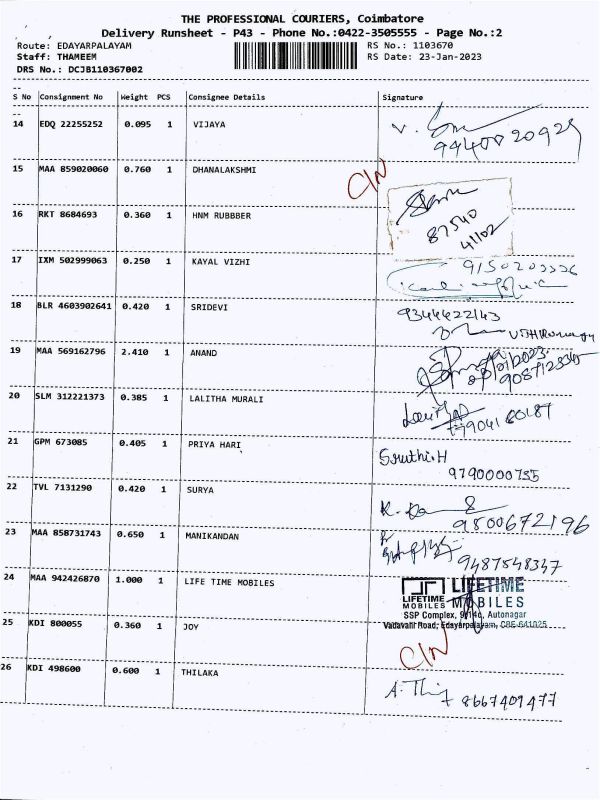 THE PROFESSIONAL COURIERS, Coimbatore
Delivery Runsheet - P43 - Phone No.:0422-3505555 - Page No.:2
Route: EDAYARPALAYAM RS No.: 1103670
Staff: THAMEEM RS Date: 23-Jan-2023
DRS No.: DCJB110367002
S No Consignment No Weight PCS Consignee Details Signature
14 EDQ 22255252 0.095 1 VIJAYA
9440020929
15 MAA 859020060 0.760 1 DHANALAKSHMI C/N
16 RKT 8684693 0.360 1 HNM RUBBBER
87540
41102
17 IXM 502999063 0.250 1 KAYAL VIZHI
18 BLR 4603902641 0.420 1 SRIDEVI 9344422143
19 MAA 569162796 2.410 1 ANAND
20 SLM 312221373 0.385 1 LALITHA MURALI
21 GPM 673085 0.405 1 PRIYA HARI Sruthi.H
9790000755
22 TVL 7131290 0.420 1 SURYA
9500672196
23 MAA 858731743 0.650 1 MANIKANDAN
9487548347
24 MAA 942426870 1.000 1 LIFE TIME MOBILES LIFETIME
LIFETIME MOBILES
MOBILES
SSP Complex, Autonagar
Vadavalli Road, Edayarpalayam, CBE-641025
25 KDI 800055 0.360 1 JOY C/N
26 KDI 498600 0.600 1 THILAKA
8667409477